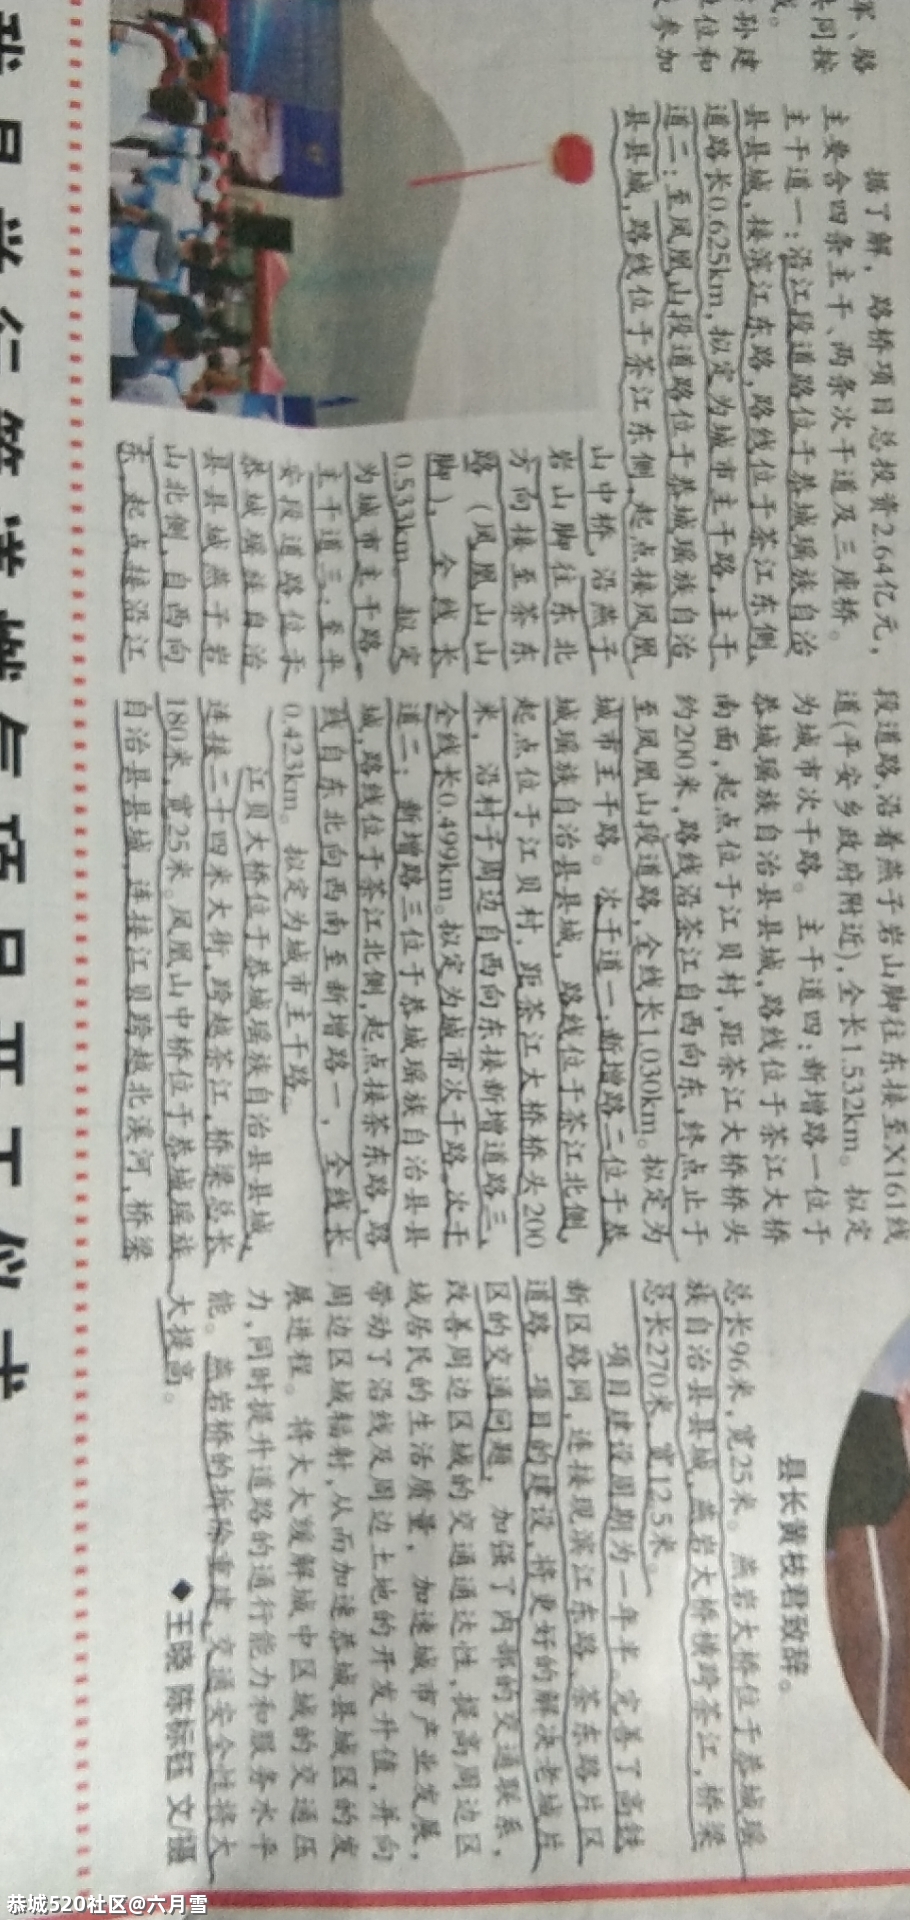 军、骆
共同按
孙建
位和
参加
据了解，路桥项目总投资2.64亿元，
主要含四条主干、两条次干道及三座桥。
主干道一：沿江段道路位于恭城瑶族自治
县县城，接滨江东路，路线位于茶江东侧，
道路长0.625km，拟定为城市主干路，主干
道二：至凤凰山段道路位于恭城瑶族自治
县县城，路线位于茶江东侧，起点接凤凰
山中桥，沿燕子
岩山脚往东北
方向接至茶东
路（凤凰山山
脚），全线长
0.533km，拟定
为城市主干路。
主干道三：至平
安段道路位于
恭城瑶族自治
县县城燕子岩
山北侧，自西向
东，起点接沿江
段道路，沿着燕子岩山脚往东接至X161线
道(平安乡政府附近)，全长1.532km。拟定
为城市次干路。主干道四：新增路一位于
恭城瑶族自治县县城，路线位于茶江大桥
南面，起点位于江贝村，距茶江大桥桥头
约200米，路线沿茶江自西向东，终点止于
至凤凰山段道路，全线长1.030km。拟定为
城市主干路。次干道一，新增路二位于恭
城瑶族自治县县城，路线位于茶江北侧，
起点位于江贝村，距茶江大桥桥头200
米，沿村子周边自西向东接新增道路三，
全线长0.499km。拟定为城市次干路。次干
道二；新增路三位于恭城瑶族自治县县
城，路线位于茶江北侧，起点接茶东路，路
线自东北向西南至新增路一，全线长
0.423km。拟定为城市主干路。
江贝大桥位于恭城瑶族自治县县城，
连接二十四米大街，跨越茶江，桥梁总长
180米，宽25米。凤凰山中桥位于恭城瑶族
自治县县城，连接江贝跨越北溪河，桥梁
县长黄枝君致辞。
总长96米，宽25米。燕岩大桥位于恭城瑶
族自治县县城，燕岩大桥横跨茶江，桥梁
总长270米，宽12.5米。
项目建设周期为一年半。完善了高铁
新区路网，连接现滨江东路、茶东路片区
道路。项目的建设，将更好的解决老城片
区的交通问题，加强了内部的交通联系，
改善周边区域的交通通达性，提高周边区
城居民的生活质量，加速城市产业发展，
带动了沿线及周边土地的开发升值，并向
周边区域辐射，从而加速恭城县城区的发
展进程。将大大缓解城中区域的交通压
力，同时提升道路的通行能力和服务水平
能。燕岩桥的拆除重建，交通安全性将大
大提高。
◆王晓 陈标钰 文/摄
恭城520社区@六月雪